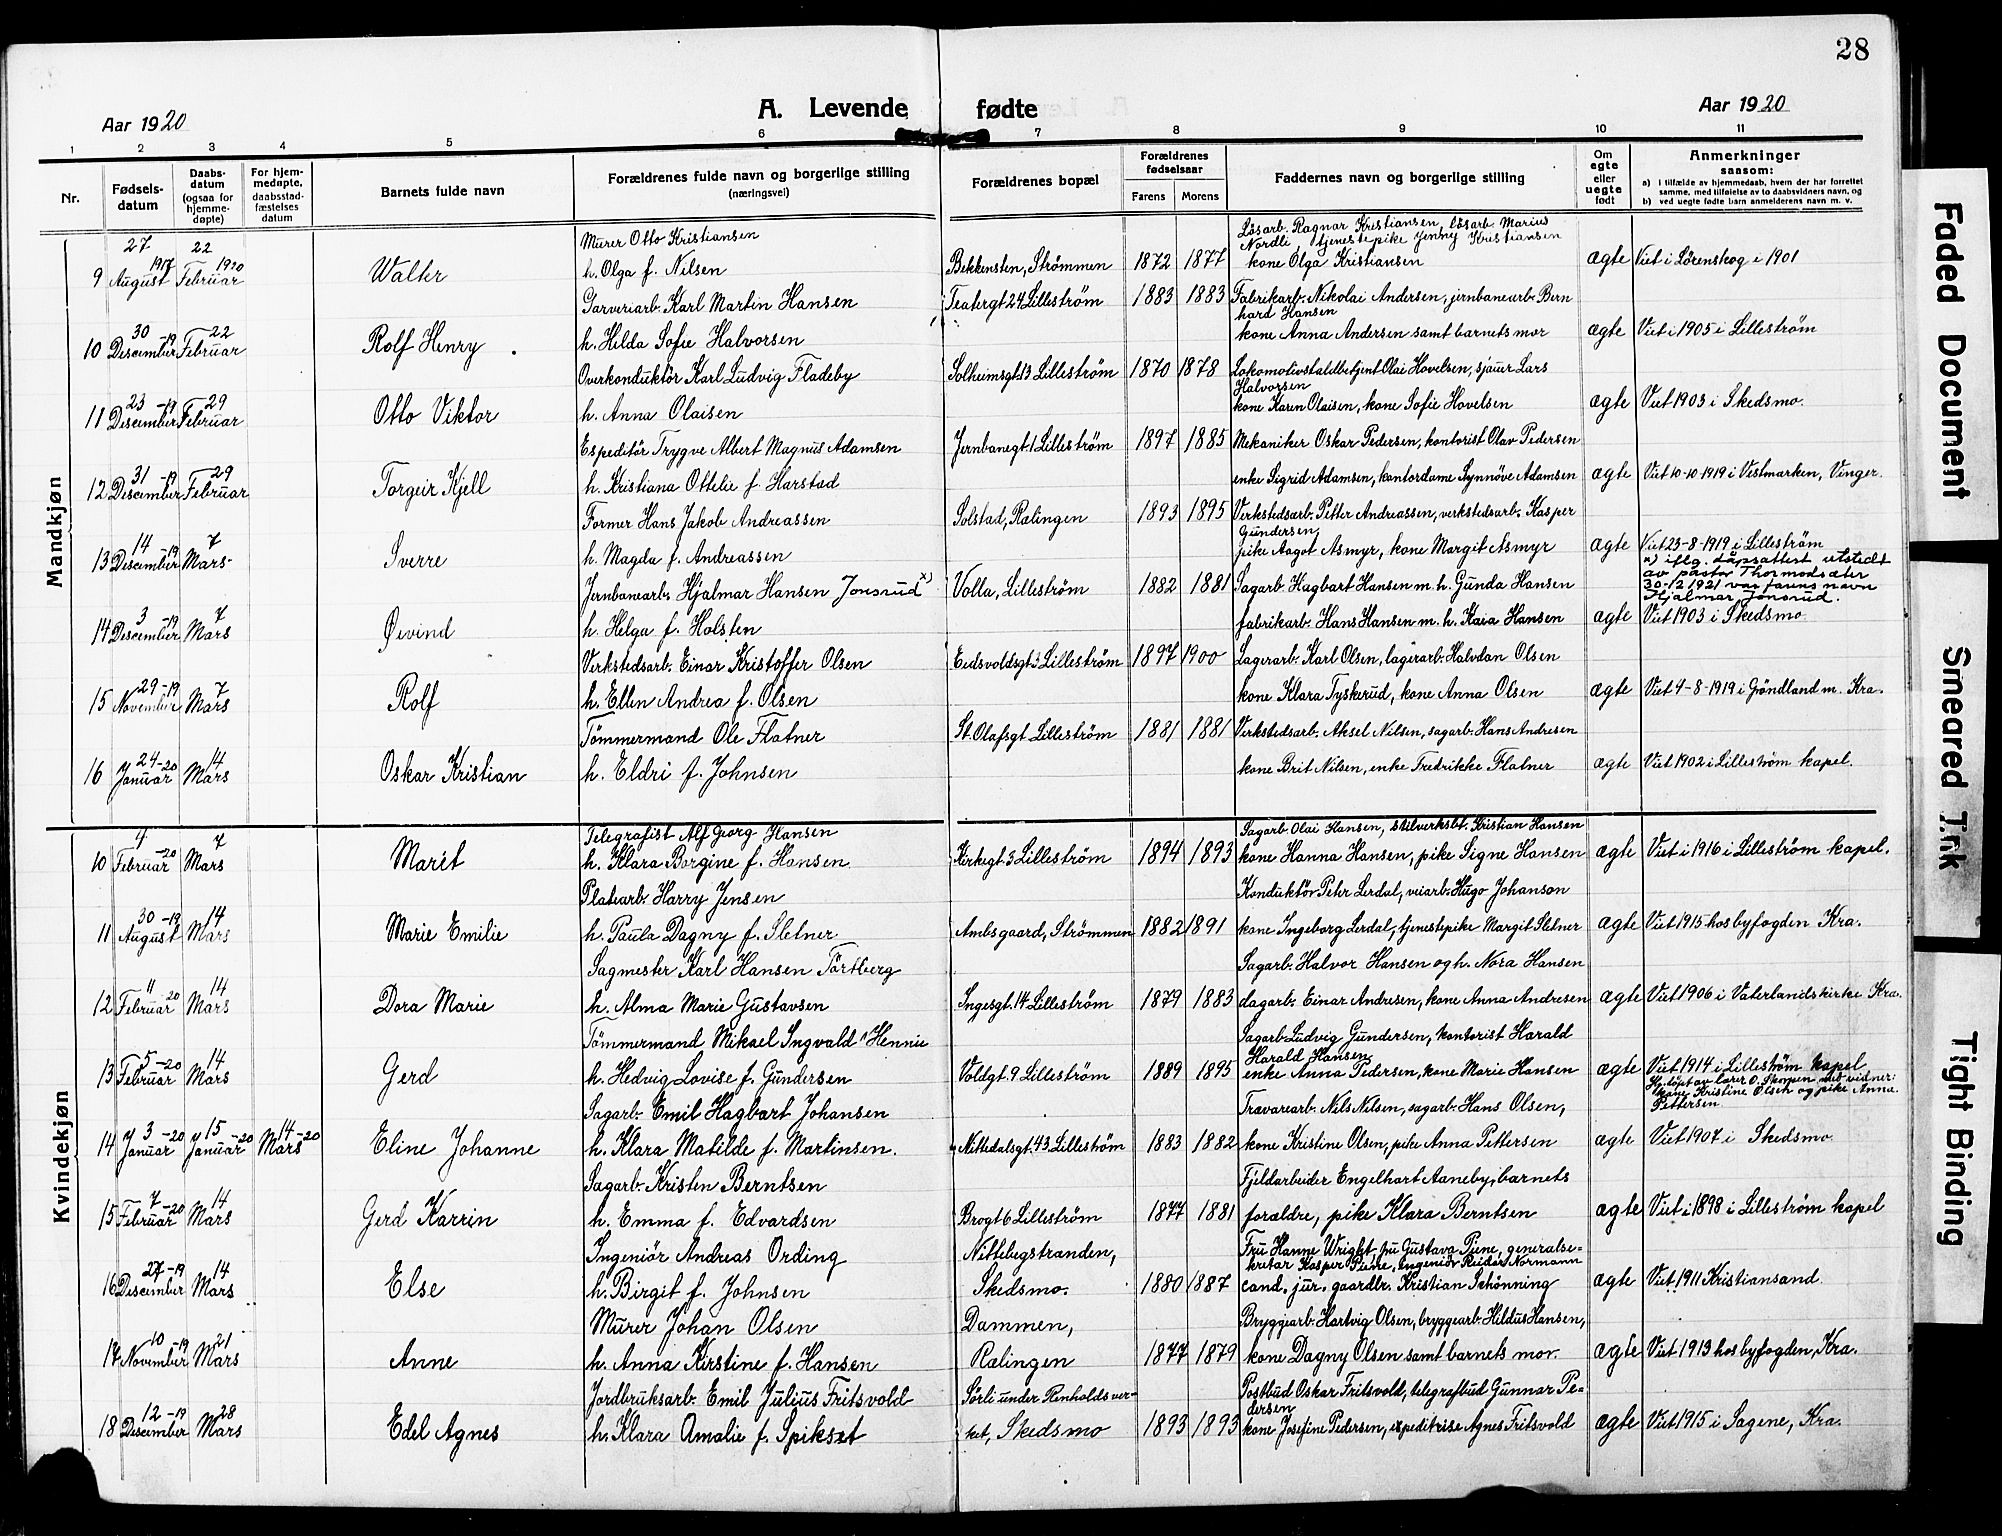 28
Aar 1920
A. Levende fødte
Aar 1920
1 2 3 4 5 6 7 8 9 10 11
Nr.
Fødsels-datum
Daabs-datum (ogsaa for hjemme-døpte)
For hjem-medøpte, daabsstad-fæstelses datum
Barnets fulde navn
Forældrenes fulde navn og borgerlige stilling (næringsvei)
Forældrenes bopæl
Forældrenes fødselsaar
Farens Morens
Faddernes navn og borgerlige stilling
Om ægte eller uegte født
Anmerkninger saasom:
a) I tilfælde av hjemmedaab, hvem der har forrettet samme, med tilføielse av to daabsvidners navn, og
b) ved uegte fødte barn anmelderens navn m. v.
Mandkjøn
27 22 Murer Otto Kristiansen Løsarb. Ragnar Kristiansen, løsarb. Marius
Nordli, tjenestepike Jenny Kristiansen
9 August 1917 Februar 1920 Walter h. Olga f. Nilsen Bekkensten, Strømmen 1872 1877 kone Olga Kristiansen ægte Viet i Lörenskog i 1901
Garveriarb. Karl Martin Hansen Teatergt 24 Lilleström 1883 1883 Fabrikarb. Nikolai Andersen, jernbanearb. Bern
hard Hansen
10 30 Desember -19 22 Februar Rolf Henry h. Hilda Sofie Halvorsen kone Anna Andersen samt barnets mor ægte Viet i 1905 i Lilleström
Overkonduktör Karl Ludvig Fladeby Solheimsgt. 13 Lilleström 1870 1878 Lokomotivstaldbetjent Olai Hovelsen, sjauer Lars
Halvorsen
11 23 Desember -19 29 Februar Otto Viktor h. Anna Olaisen kone Karen Olaisen, kone Sofie Hovelsen ægte Viet 1903 i Skedsmo.
Espeditör Trygve Albert Magnus Adamsen Jernbanegt. 1 Lilleström 1897 1885 Mekaniker Oskar Pedersen, kontorist Olav Pedersen
12 31 Desember -19 29 Februar Torgeir Kjell h. Kristiana Ottelie f. Harstad enke Sigrid Adamsen, kontordame Synnöve Adamsen ægte Viet 10-10-1919 i Vestmarken, Vinger.
Former Hans Jakob Andreassen Solstad, Rælingen 1893 1895 Verkstedsarb. Petter Andreassen, verkstedsarb. Kasper
Gundersen,
13 14 Desember -19 7 Mars Sverre h. Magda f. Andreassen pike Aagot Asmyr, kone Margit Asmyr ægte Viet 23-8-1919 i Lilleström
Jernbanearb. Hjalmar Hansen Jonsrud x) Volla, Lilleström 1882 1881 Sagarb. Hagbart Hansen m. h. Gunda Hansen x) iflg. dåpsattest utstedt
av pastor Thormodsæter
30-12 1921 var farens navn
Hjalmar Jonsrud.
14 3 Desember -19 7 Mars Øivind h. Helga f. Holsten fabrikarb. Hans Hansen m. h. Kaia Hansen ægte Viet 1903 i Skedsmo
Verkstedsarb. Einar Kristoffer Olsen Eidsvoldsgt 3 Lilleström 1897 1900 Lagerarb. Karl Olsen, lagerarb. Halvdan Olsen
15 29 November -19 7 Mars Rolf h. Ellen Andrea f. Olsen kone Klara Tyskerud, kone Anna Olsen ægte Viet 4-8-1919 i Gröndland m. Kra.
Tömmermand Ole Flatner St. Olafsgt Lilleström 1881 1881 Verkstedsarb. Aksel Nilsen, sagarb. Hans Andresen
16 24 Januar -20 14 Mars Oskar Kristian h. Eldri f. Johnsen kone Brit Nilsen, enke Fredrikke Flatner ægte Viet 1902 i Lilleström kapel.
Kvindekjøn
Telegrafist Alf Georg Hansen Sagarb. Olai Hansen, stilverksbt. Kristian Hansen
10 4 Februar -20 7 Mars Marit h. Klara Borgine f. Hansen Kirkegt 3 Lilleström 1894 1893 kone Hanna Hansen, pike Signe Hansen ægte Viet i 1916 i Lilleström kapel.
Platearb. Harry Jensen Konduktör Peter Lerdal, veiarb. Hugo Johanson
11 30 August -19 14 Mars Marie Emilie h. Paula Dagny f. Sletner Ambsgaard, Strömmen 1882 1891 kone Ingeborg Lerdal, tjenestepike Margit Sletner ægte Viet 1915 hos byfogden Kra.
Sagmester Karl Hansen Törtberg Sagarb. Halvor Hansen og h. Nora Hansen
12 11 Februar -20 14 Mars Dora Marie h. Alma Marie Gustavsen Ingesgt. 14 Lilleström 1879 1883 dagarb. Einar Andresen, kone Anna Andresen ægte Viet 1906 i Vaterlands kirke Kra.
Tömmermand Mikael Ingvald Hennie Sagarb. Ludvig Gundersen, kontorist Harald
Harald Hansen
13 5 Februar -20 14 Mars Gerd h. Hedvig Lovise f. Gundersen Voldgt. 9 Lilleström 1889 1895 enke Anna Pedersen, kone Marie Hansen ægte Viet 1914 i Lilleström kapel
Sagarb. Emil Hagbart Johansen Travarearb. Nils Nilsen, sagarb. Hans Olsen, Hj.döpt av lærer O. med vidner:
kone Kristine Olsen og pike Anna
Pettersen
14 3 Januar -20 15 Januar -20 14 Mars -20 Eline Johanne h. Klara Matilde f. Martinsen. Nittedalsgt. 43 Lilleström 1883 1882 kone Kristine Olsen, pike Anna Pettersen ægte Viet 1907 i Skedsmo
Sagarb. Kristen Berntsen Fjeldarbeider Engelhart Aaneby, barnets
15 7 Februar -20 14 Mars Gerd Karrin h. Emma f. Edvardsen Brogt 6 Lilleström 1877 1881 forældre, pike Klara Berntsen ægte Viet i 1898 i Lilleström kapel
Ingeniör Andreas Ording Nittebegstranden, Fru Hanne Wright, fru Gustava Piene, generalse-
kretær Kasper Piene, Ingeniör Reidar Normann
16 27 Desember -19 14 Mars Else h. Birgit f. Johnsen Skedsmo. 1880 1887 cand. jur. gaardbr. Kristian Schönning ægte Viet 1911 Kristiansand
Murer Johan Olsen Dammen, Bryggearb. Hartvig Olsen, bryggearb. Hildus Hansen,
17 10 November -19 21 Mars Anne h. Anna Kirstine f. Hansen Rælingen 1877 1879 kone Dagny Olsen samt barnets mor. ægte Viet 1913 hos byfogden, Kra.
Jordbruksarb. Emil Julius Fritsvold Sörli under Renholdsver- Postbud Oskar Fritsvold, telegrafbud Gunnar Pe-
dersen
18 12 Desember -19 28 Mars Edel Agnes h. Klara Amalie f. Spikset ket, Skedsmo 1893 1893 kone Josefine Pedersen, expeditrise Agnes Fritsvold ægte Viet 1915 i Sagene, Kra.
Faded Document
Smeared Ink
Tight Binding